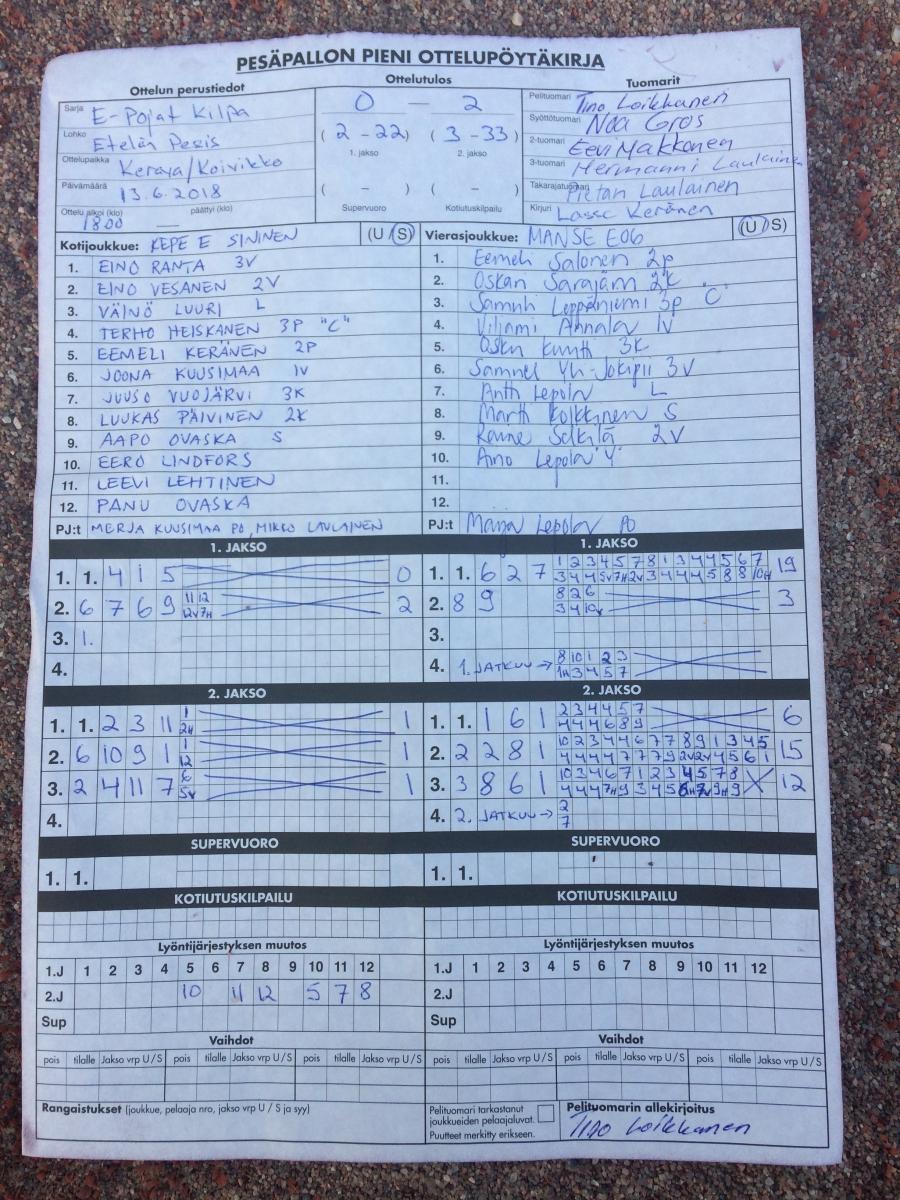 PESÄPALLON PIENI OTTELUPÖYTÄKIRJA
Ottelun perustiedot
Sarja E-Pojat Kilpa
Lohko Etelän Pesis
Ottelupaikka Kerava/Koivikko
Päivämäärä 13.6.2018
Ottelu alkoi (klo) 1800 päättyi (klo)
Ottelutulos
0 — 2
(2 - 22) (3 - 33)
1. jakso 2. jakso
( - ) ( - )
Supervuoro Kotiutuskilpailu
Tuomarit
Pelituomari Tino Loikkanen
Syöttötuomari Noa Gros
2-tuomari Eevi Makkonen
3-tuomari Hermanni Laulainen
Takarajatuomari Laulainen
Kirjuri Lasse Keränen
Kotijoukkue: KEPE E SININEN (U S)
1. EINO RANTA 3V
2. EINO VESANEN 2V
3. VÄINÖ LUURI L
4. TERHO HEISKANEN 3P "C"
5. EEMELI KERÄNEN 2P
6. JOONA KUUSIMAA 1V
7. JUUSO VUOJÄRVI 3K
8. LUUKAS PÄIVINEN 2K
9. AAPO OVASKA S
10. EERO LINDFORS
11. LEEVI LEHTINEN
12. PANU OVASKA
PJ:t MERJA KUUSIMAA PO, MIKKO LAULAINEN
Vierasjoukkue: MANSE E06 (U S)
1. Eemeli Salonen 2p
2. 2K
3. 3p "C"
4. 1v
5. 3K
6. Yli-Jokipii 3V
7. Lepola L
8. Kolkkinen S
9. 2V
10. Lepola
11.
12.
PJ:t Lepola PO
1. JAKSO
1. 1. 4 1 5 0
2. 6 7 6 9 11 12 2
12v 7H
3. 1.
4.
1. JAKSO
1. 1. 6 2 7 1 2 3 4 5 7 8 1 3 4 4 5 6 7 19
3 4 4 5v 7H 2v 3 4 4 4 5 8 8 10H
2. 8 9 8 2 6 3
3 4 10v
3.
4. 1. JATKUU → 8 10 1 2 3
1H 3 4 5 7
2. JAKSO
1. 1. 2 3 11 1 1
2H
2. 6 10 9 1 1 1
12
3. 2 4 11 7 6 1
5v
4.
2. JAKSO
1. 1. 1 6 1 2 3 4 4 5 7 6
4 4 4 6 8 9
2. 2 2 8 1 10 2 3 4 4 6 7 7 8 9 1 3 4 5 15
4 4 4 4 7 7 7 9 2v 2v 4 5 6 1
3. 3 8 6 1 10 3 4 6 7 1 2 3 4 5 7 8 12
4 4 4 7H 9 3 4 5
4. 2. JATKUU → 2
7
SUPERVUORO
1. 1.
SUPERVUORO
1. 1.
KOTIUTUSKILPAILU
KOTIUTUSKILPAILU
Lyöntijärjestyksen muutos
1.J 1 2 3 4 5 6 7 8 9 10 11 12
2.J 10 11 12 5 7 8
Sup
Lyöntijärjestyksen muutos
1.J 1 2 3 4 5 6 7 8 9 10 11 12
2.J
Sup
Vaihdot
pois tilalle Jakso vrp U/S pois tilalle Jakso vrp U/S pois tilalle Jakso vrp U/S
Vaihdot
pois tilalle Jakso vrp U/S pois tilalle Jakso vrp U/S pois tilalle Jakso vrp U/S
Rangaistukset (joukkue, pelaaja nro, jakso vrp U / S ja syy)
Pelituomari tarkastanut
joukkueiden pelaajaluvat.
Puutteet merkitty erikseen.
Pelituomarin allekirjoitus
Tino Loikkanen